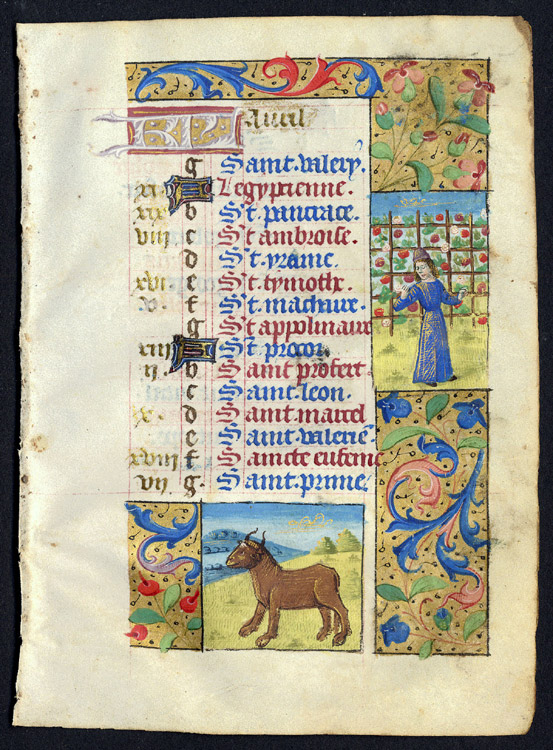 KL Auril
g Saint Valery.
xi A Legyptienne.
xix b St. pancrace.
viii c St ambroise.
d St. yrame.
xvi e St. tymothe.
v. f St. machaire.
g St appolinaire
xiii A St procor.
ii. b Saint protert.
c Saint leon.
x. d Saint marcel
e Saint valerie.
xviii f Saincte eufeme
vii g. Saint prime.